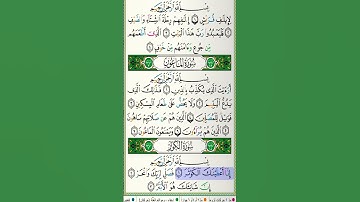 بِسْمِ ٱللَّهِ ٱلرَّحْمَٰنِ ٱلرَّحِيمِ
لِإِيلَٰفِ قُرَيْشٍ ۝١ إِۦلَٰفِهِمْ رِحْلَةَ ٱلشِّتَآءِ وَٱلصَّيْفِ ۝٢
فَلْيَعْبُدُوا۟ رَبَّ هَٰذَا ٱلْبَيْتِ ۝٣ ٱلَّذِىٓ أَطْعَمَهُم
مِّن جُوعٍ وَءَامَنَهُم مِّنْ خَوْفٍۭ ۝٤
سُورَةُ المَاعُونِ
بِسْمِ ٱللَّهِ ٱلرَّحْمَٰنِ ٱلرَّحِيمِ
أَرَءَيْتَ ٱلَّذِى يُكَذِّبُ بِٱلدِّينِ ۝١ فَذَٰلِكَ ٱلَّذِى
يَدُعُّ ٱلْيَتِيمَ ۝٢ وَلَا يَحُضُّ عَلَىٰ طَعَامِ ٱلْمِسْكِينِ ۝٣
فَوَيْلٌ لِّلْمُصَلِّينَ ۝٤ ٱلَّذِينَ هُمْ عَن صَلَاتِهِمْ سَاهُونَ ۝٥
ٱلَّذِينَ هُمْ يُرَآءُونَ ۝٦ وَيَمْنَعُونَ ٱلْمَاعُونَ ۝٧
سُورَةُ الكَوْثَرِ
بِسْمِ ٱللَّهِ ٱلرَّحْمَٰنِ ٱلرَّحِيمِ
إِنَّآ أَعْطَيْنَٰكَ ٱلْكَوْثَرَ ۝١ فَصَلِّ لِرَبِّكَ وَٱنْحَرْ ۝٢
إِنَّ شَانِئَكَ هُوَ ٱلْأَبْتَرُ ۝٣